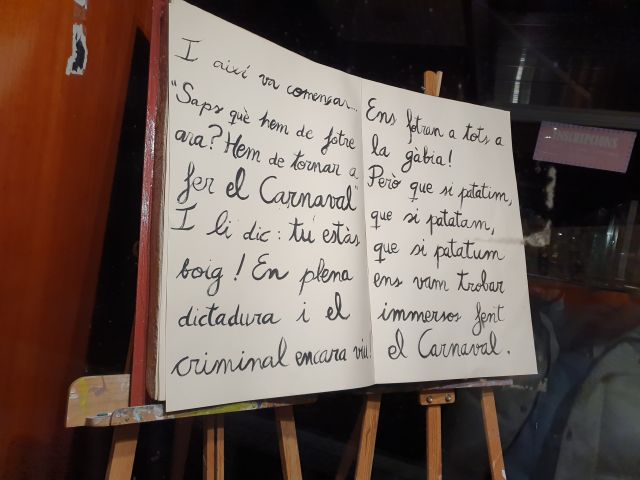 I així va començar...
"Saps què hem de fotre
ara? Hem de tornar a
fer el Carnaval"
I li dic: tu estàs
boig! En plena
dictadura i el
criminal encara viu!
Ens fotran a tots a
la gàbia!
Però que si patatim,
que si patatam,
que si patatum
ens vam trobar
immersos fent
el Carnaval.
INSCRIPCIONS